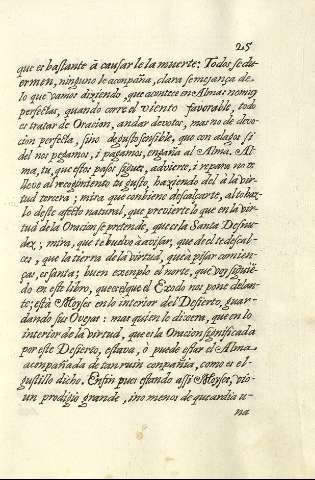 25
que es bastante à causarle la muerte: Todos se du-
ermen, ninguno le acompaña, clara semejança de-
lo que vamos diziendo, que acontece en Almas no muy
perfectas, quando corre el viento favorable, todo
es tratar de Oracion, andar devotos, mas no de devo-
cion perfecta, sino de gusto sensible, que con alagos, si
del nos pegamos, i pagamos, engaña al Alma. Al-
ma, tu, que estos pasos sigues, advierte, i repara no te
lleve al recogimiento tu gusto, haziendo del à la vir-
tud tercera; mira que combiene descalçarte, al to baz-
lo deste afecto natural, que pervierte lo que en la vir-
tud de la Oracion se pretende, que es la Santa Desnu-
dez; mira, que te buelvo à avisar, que dectedescal-
ces, que la tierra de la virtud, que à pisar comien-
ças, es santa; buen exemplo el norte, que voy siguien-
do en este libro, que es el que el Exodo nos pone delan-
te; està Moyses en lo interior del Desierto guar-
dando sus Ovejas: mas quien le dixera, que en lo
interior de la virtud, que es la Oracion significada
por este Desierto, estava, ò puede estar el Alma
acompañada de tan ruin compañia, como es el-
gustillo dicho. Enfin pues estando assi Moyses, vio-
un prodigio grande, i no menos de que ardia u-
na